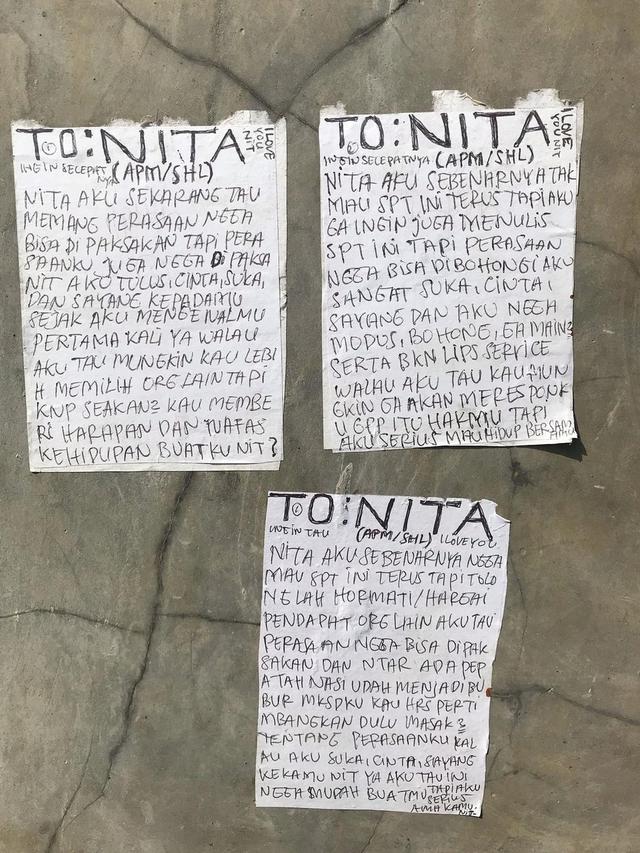 TO: NITA
I LOVE YOU NIT
INGIN SECEPATNYA (APM/SHL)
NITA AKU SEKARANG TAU
MEMANG PERASAAN NGGA
BISA DI PAKSAKAN TAPI PERA
SAANKU JUGA NGGA DI PAKSA
NIT AKU TULUS, CINTA, SUKA,
DAN SAYANG KEPADAMU
SEJAK AKU MENGENALMU
PERTAMA KALI YA WALAU
AKU TAU MUNGKIN KAU LEBI
H MEMILIH ORG LAIN TAPI
KNP SEAKAN2 KAU MEMBE
RI HARAPAN DAN NAFAS
KEHIDUPAN BUATKU NIT?
TO: NITA
I LOVE YOU NIT
INGIN SECEPATNYA (APM/SHL)
NITA AKU SEBENARNYA TAK
MAU SPT INI TERUS TAPI AKU
GA INGIN JUGA MENULIS
SPT INI TAPI PERASAAN
NGGA BISA DI BOHONGI AKU
SANGAT SUKA, CINTA,
SAYANG DAN AKU NGGA
MODUS, BOHONG, GA MAIN2
SERTA BKN LIPS SERVICE
WALAU AKU TAU KAU MUN
GKIN GA AKAN MERESPONK
U GPP ITU HAKMU TAPI
AKU SERIUS MAU HIDUP BERSAMAMU
TO: NITA
INGIN TAU (APM/SHL) I LOVE YOU
NITA AKU SEBENARNYA NGGA
MAU SPT INI TERUS TAPI TOLO
NG LAH HORMATI/HARGAI
PENDAPAT ORG LAIN AKU TAU
PERASAAN NGGA BISA DIPAK
SAKAN DAN NTAR ADA PEP
ATAH NASI UDAH MENJADI BU
BUR MKSDKU KAU HRS PERTI
MBANGKAN DULU MASAK2
TENTANG PERASAANKU KAL
AU AKU SUKA, CINTA, SAYANG
KEKAMU NIT YA AKU TAU INI
NGGA MUDAH BUATMU TAPI AKU
SERIUS
AMA KAMU
NIT